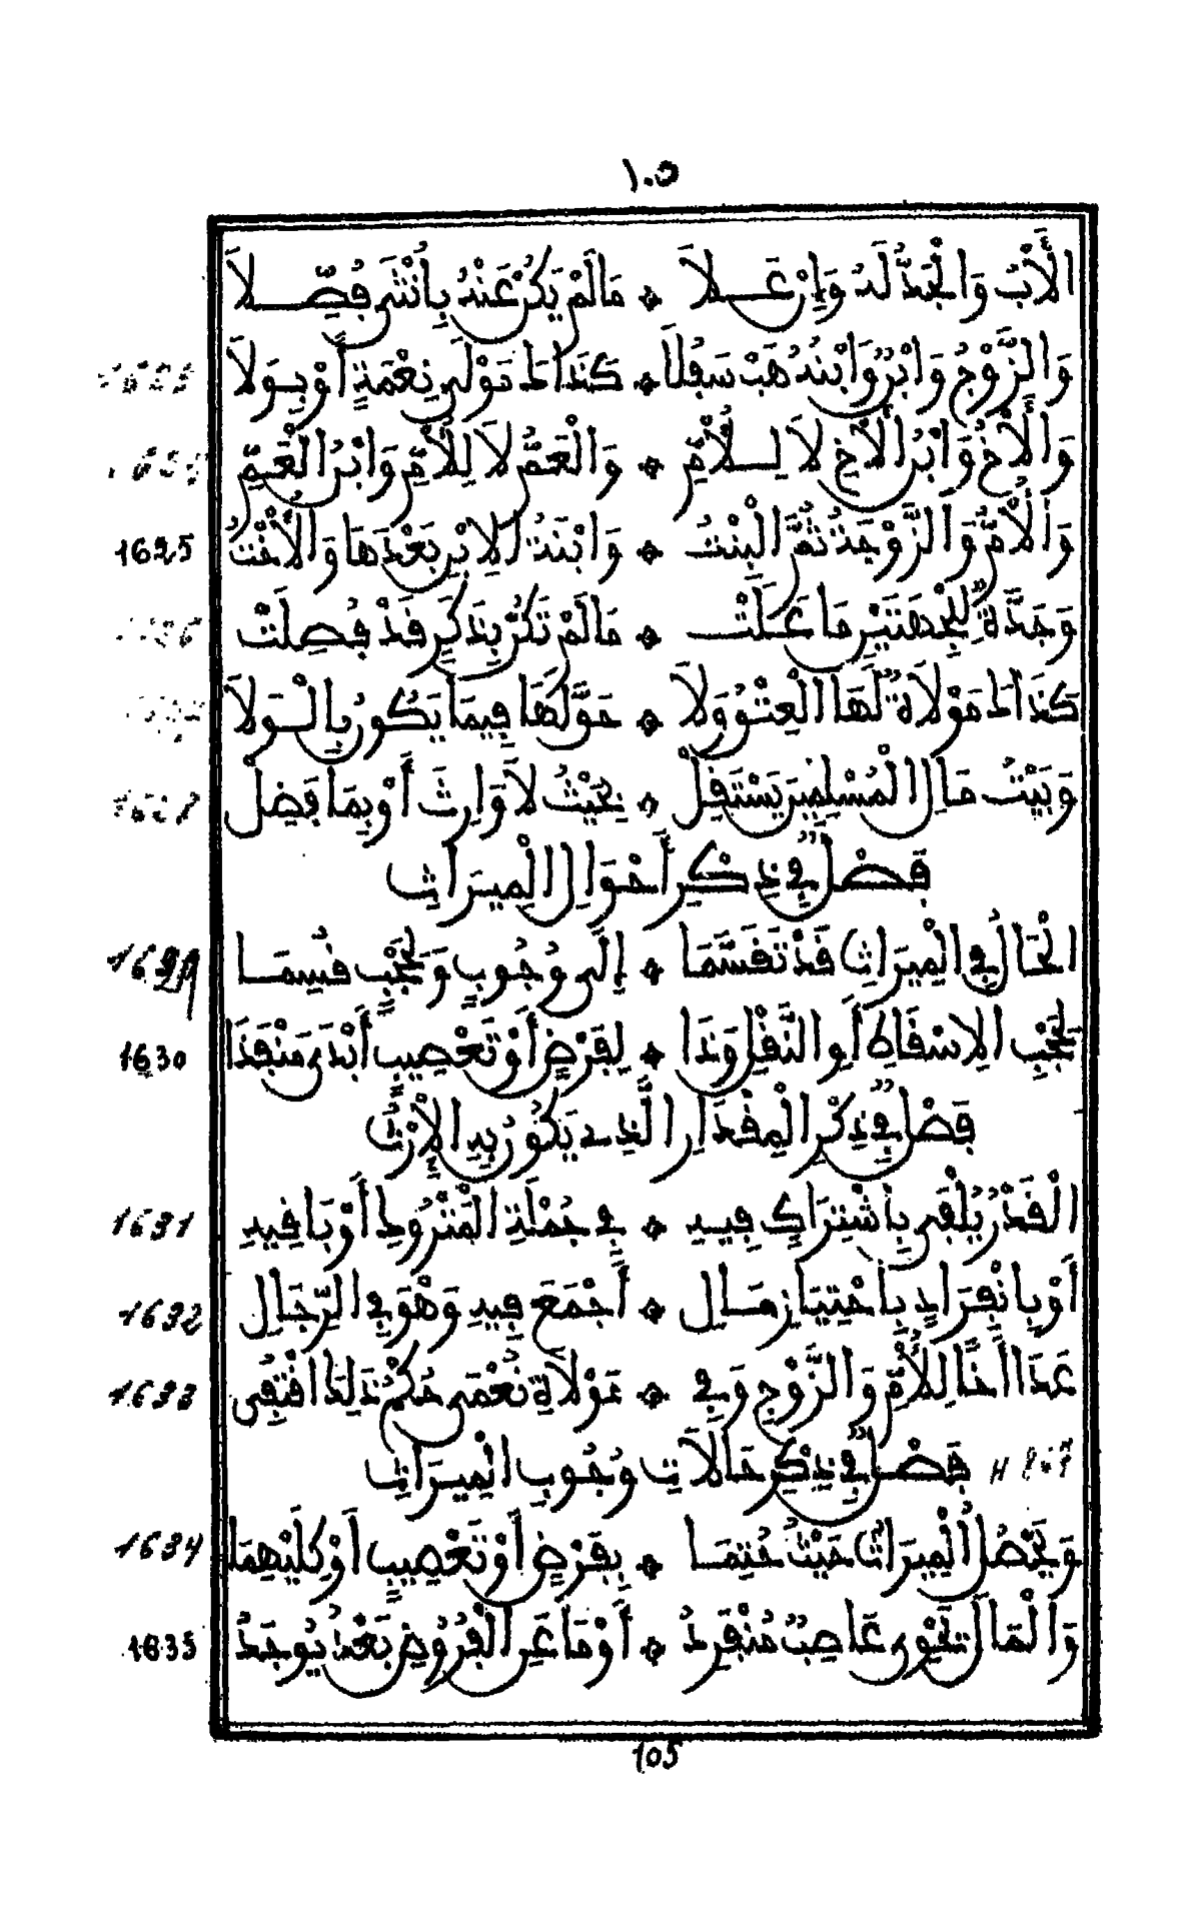 ١٠٥
الْأَبُ وَالْجَدُّ لَهُ وَإِنْ عَلَا ۞ مَا لَمْ يَكُنْ عَنْهُ بِأُنْثَى فُصِّلَا
وَالزَّوْجُ وَابْنٌ وَابْنُهُ هَبْ سَفُلَا ۞ كَذَاكَ مَوْلَى نِعْمَةٍ أَوْ بِوَلَا
وَالْأَخُ وَابْنُ الْأَخِ لَا لِلْأُمِّ ۞ وَالْعَمُّ لَا لِلْأُمِّ وَابْنُ الْعَمِّ
1625 وَالْأُمُّ وَالزَّوْجَةُ ثُمَّ الْبِنْتُ ۞ وَابْنَةُ الِابْنِ بَعْدَهَا وَالْأُخْتُ
وَجَدَّةٌ لِلْجِهَتَيْنِ مَا عَلَتْ ۞ مَا لَمْ تَكُنْ بِذَكَرٍ قَدْ فُصِلَتْ
كَذَاكَ مَوْلَاةٌ لَهَا الْعِتْقُ وَلَا ۞ حَقَّ لَهَا فِيمَا يَكُونُ بِالْوَلَا
وَبَيْتُ مَالِ الْمُسْلِمِينَ يَسْتَقِلْ ۞ بِحَيْثُ لَا وَارِثَ أَوْ بِمَا فَضَلْ
فَصْلٌ فِي ذِكْرِ أَحْوَالِ الْمِيرَاثِ
1629 الْحَالُ فِي الْمِيرَاثِ قَدْ تَقَسَّمَا ۞ إِلَى وُجُوبٍ وَلِحَجْبٍ قُسِمَا
1630 لِحَجْبِ الِاسْقَاطِ أَوِ النَّقْلِ وَذَا ۞ لِفَرْضٍ أَوْ تَعْصِيبٍ أَبْدَى مَنْفَذَا
فَصْلٌ فِي ذِكْرِ الْمِقْدَارِ الَّذِي يَكُونُ بِهِ الْإِرْثُ
1631 الْقَدْرُ يُلْفَى بِاشْتِرَاكٍ فِيهِ ۞ فِي جُمْلَةِ الْمَتْرُوكِ أَوْ بَاقِيهِ
1632 أَوْ بِانْفِرَادٍ بِاحْتِيَازِ مَالِ ۞ أَجْمَعَ فِيهِ وَهْوَ فِي الرِّجَالِ
1633 عَدَا أَخًا لِلْأُمِّ وَالزَّوْجِ وَفِي ۞ مَوْلَاةِ نُعْمَى حُكْمُ ذَلِكَ اقْتُفِي
فَصْلٌ فِي ذِكْرِ حَالَاتِ وُجُوبِ الْمِيرَاثِ
1634 وَيَحْصُلُ الْمِيرَاثُ حَيْثُ حُتِمَا ۞ بِفَرْضٍ أَوْ تَعْصِيبٍ أَوْ كِلَيْهِمَا
1635 وَالْمَالَ يَحْوِي عَاصِبٌ مُنْفَرِدُ ۞ أَوْ مَا عَنِ الْفُرُوضِ بَعْدُ يُوجَدُ
105